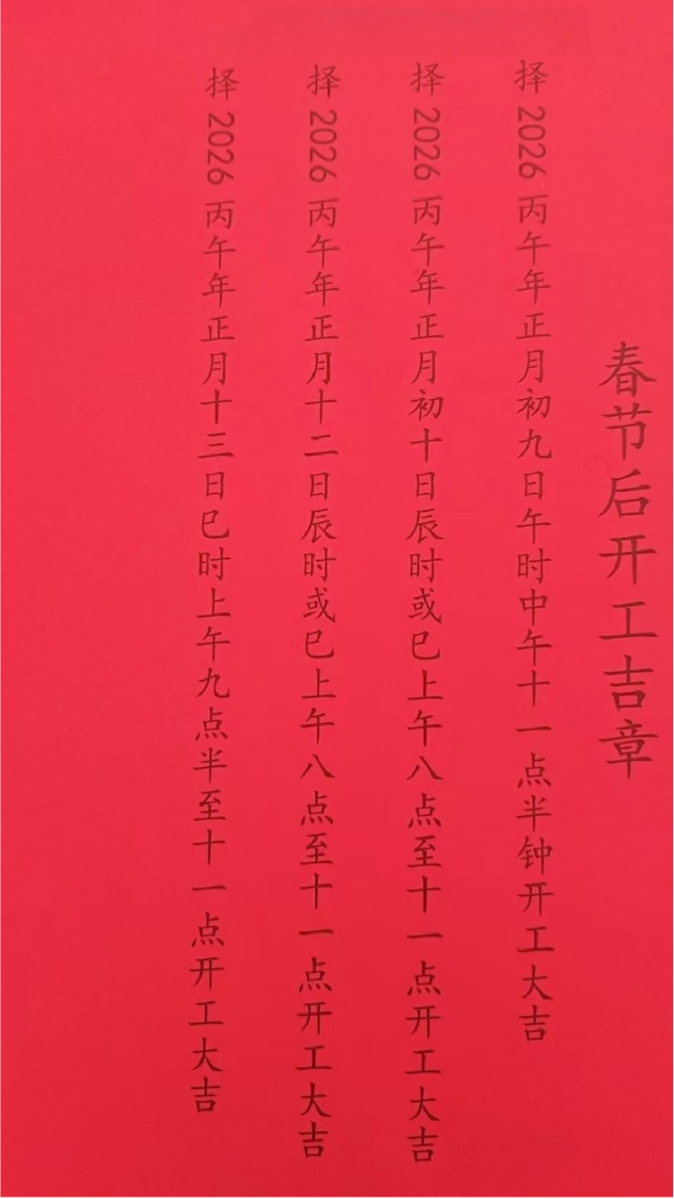 春节后开工吉章
择2026丙午年正月初九日午时中午十一点半钟开工大吉
择2026丙午年正月初十日辰时或巳上午八点至十一点开工大吉
择2026丙午年正月十二日辰时或巳上午八点至十一点开工大吉
择2026丙午年正月十三日巳时上午九点半至十一点开工大吉